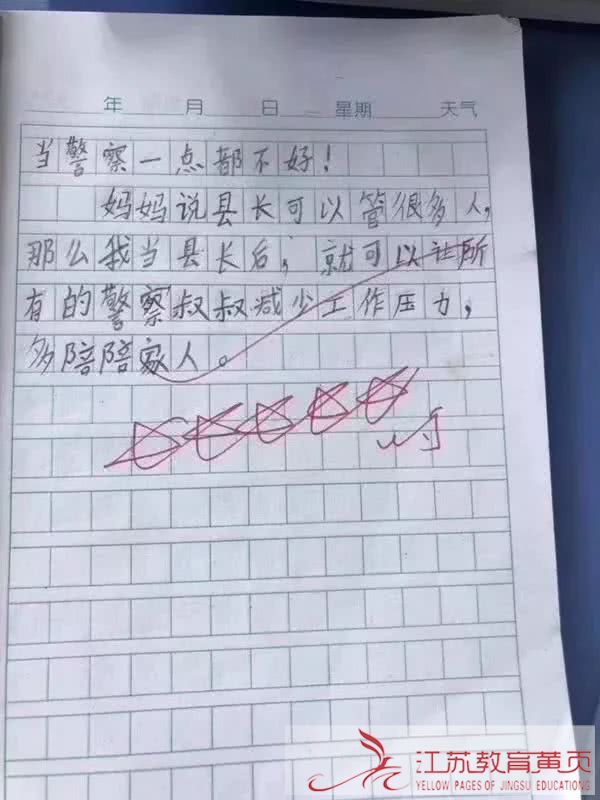 年 月 日 星期 天气
当警察一点都不好!
妈妈说县长可以管很多人,
那么我当县长后,就可以让所
有的警察叔叔减少工作压力,
多陪陪家人。
江苏教育黄页
YELLOW PAGES OF JINGSU EDUCATIONG